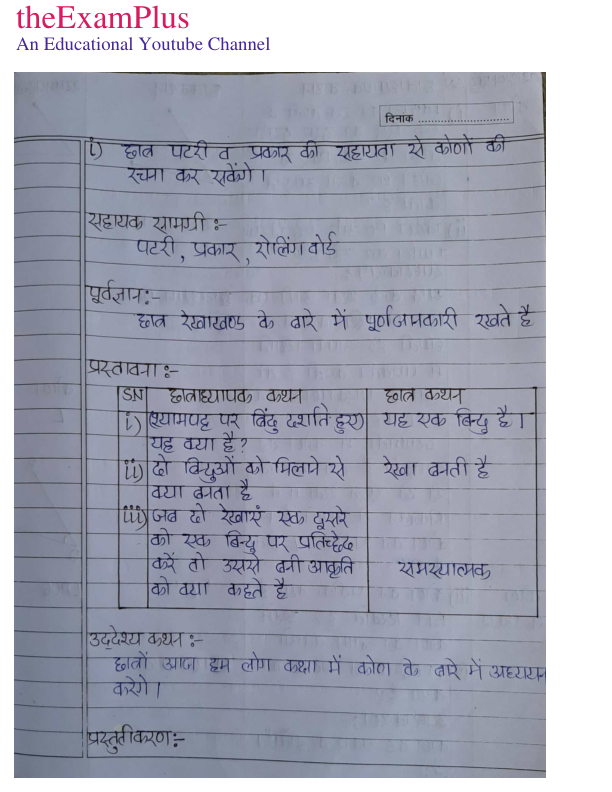 theExamPlus
An Educational Youtube Channel
दिनाक ..............................
i) छात्र पटरी व प्रकार की सहायता से कोणों की
रचना कर सकेंगे।
सहायक सामग्री :-
पटरी, प्रकार, रोलिंग बोर्ड
पूर्वज्ञान:-
छात्र रेखाखण्ड के बारे में पूर्णजानकारी रखते है
प्रस्तावना :-
SN छात्राध्यापक कथन छात्र कथन
i) (श्यामपट्ट पर बिंदु दर्शाते हुए) यह एक बिन्दु है।
यह क्या है?
ii) दो बिन्दुओं को मिलाने से रेखा बनती है
क्या बनता है
iii) जब दो रेखाएं एक दूसरे
को एक बिन्दु पर प्रतिच्छेद
करें तो उससे बनी आकृति समस्यात्मक
को क्या कहते है
उद्देश्य कथन :-
छात्रों आज हम लोग कक्षा में कोण के बारे में अध्ययन
करेगे।
प्रस्तुतीकरण:-